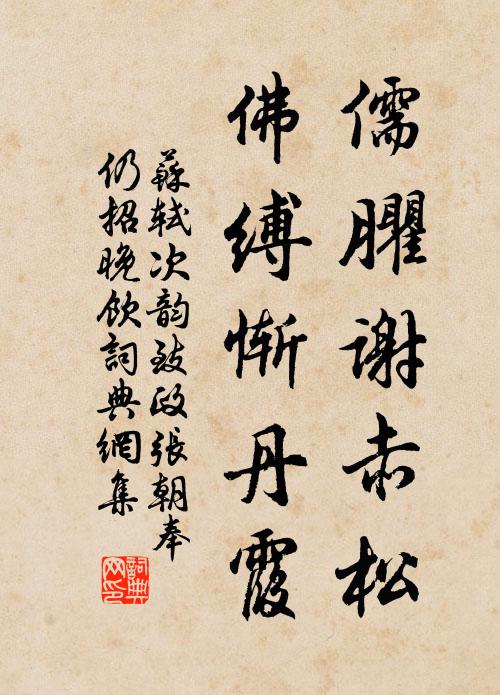 儒臞謝赤松
佛縛慚丹霞
蘇軾次韵致政張朝奉
仍招晚飲詞典網集
詞典網印